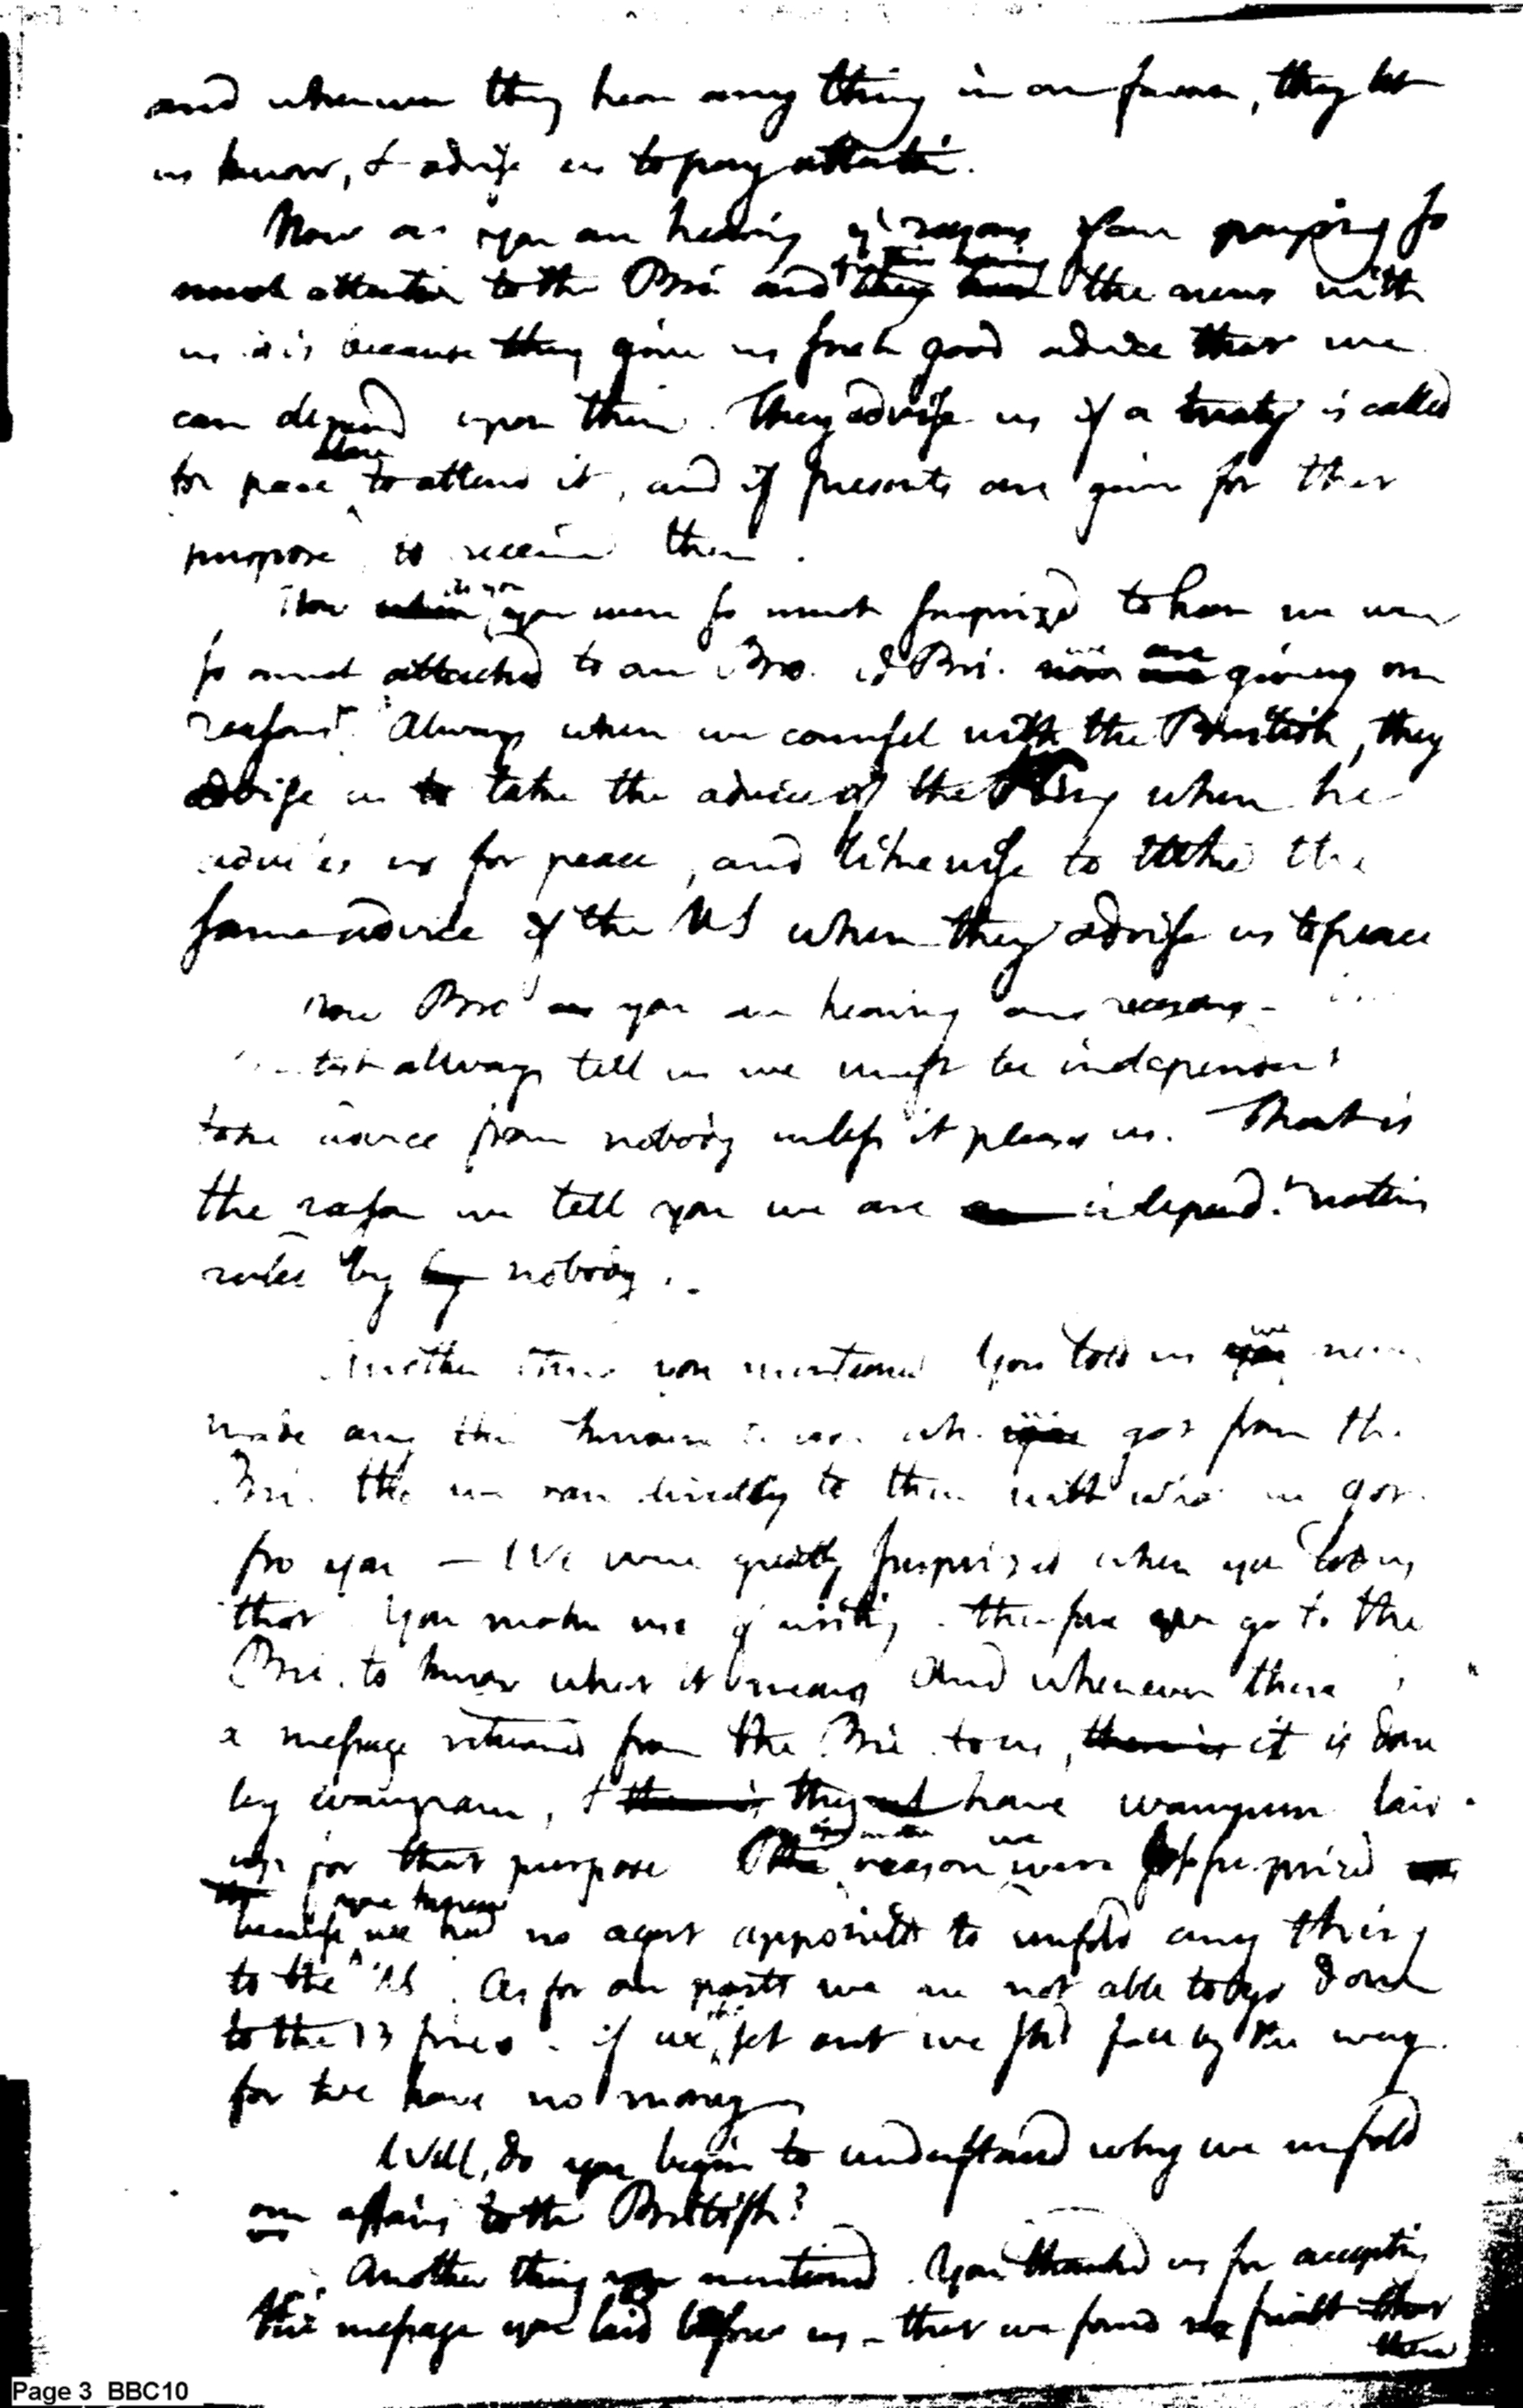 and whenever they hear any thing in our favor, they let
us know, & advise us to pay attenti.
Now as you are hearing ye reasons of our paying so
much attention to the Bri. and the news with
us it is because they give us such good advice that we
can depend upon them. They advise us if a treaty is called
for peace to attend it, and if presents are given for that
purpose to receive them.
Now you were so much surprized to hear we were
so much attached to our Bro. ye Bri. we are giving our
reasons. Always when we counsel with the British, they
advise us to take the advice of the King when he
advises us for peace, and likewise to take the
same advice of the US when they advise us to peace
Now Bro as you are hearing our reasons -
always tell us we must be independent
take advice from nobody unless it pleases us. That is
the reason we tell you we are independ.t nation
ruled by by nobody.
Another thing you mentioned You told us we never
made any thi known to you wh. we got from the
Bri. tho we ran directly to them with what we got
fro you — We were greatly surprized when you told us
that. You make use of writing - therefore we go to the
Bri. to know what it means And whenever there is
a message returned from the Bri. to us, there is it is done
by wampum, & they have wampum laid
up for that purpose The reason we were so surprized
because we had no agent appointed to unfold any thing
to the US. As for our parts we are not able to go down
to the 13 fires - if we set out we shd fall by the way
for we have no money
Well, do you begin to understand why we unfold
our affairs to the British?
Another thing you mentioned. You thanked us for accepting
the message you laid before us - that we found no fault